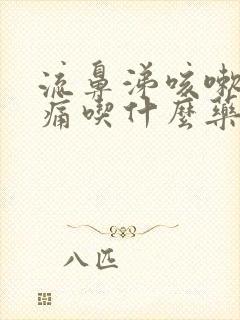 流鼻涕咳嗽
痛喫什麼藥
八匹